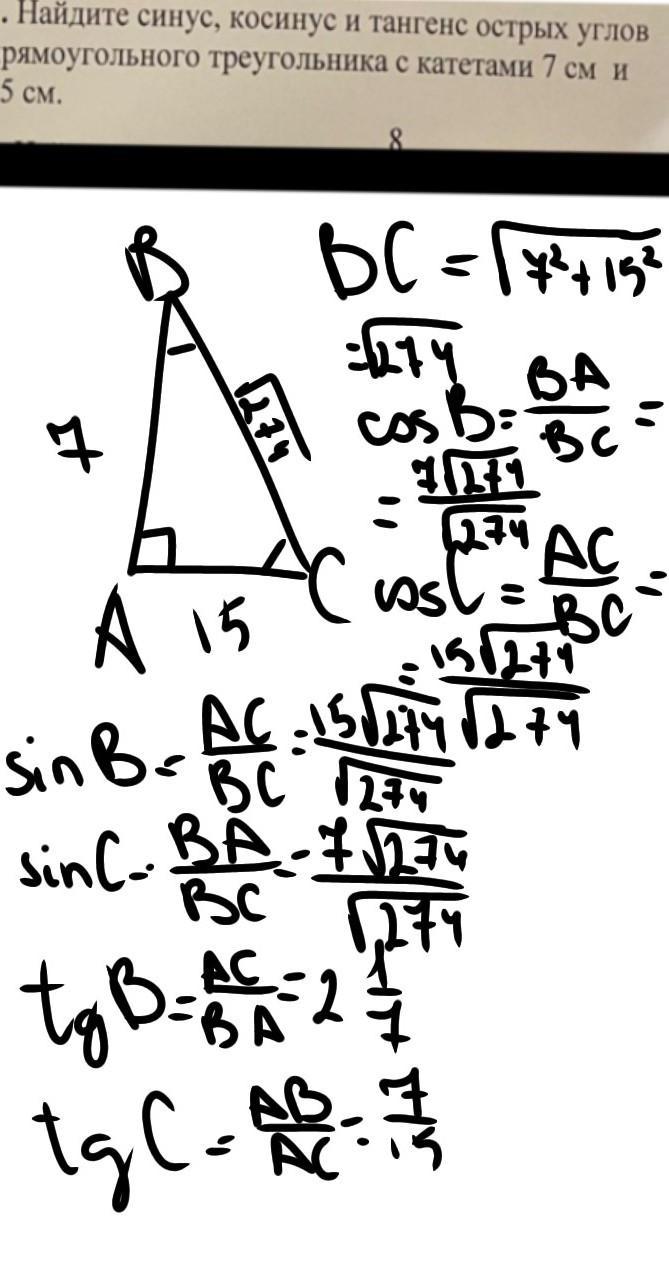 . Найдите синус, косинус и тангенс острых углов
рямоугольного треугольника с катетами 7 см и
5 см.
8
B
BC = √7²+15²
=√274
7
√274
cos B = BA/BC =
= 7√274/√274
A
15
C
cos C = AC/BC =
= 15√274/√274
sin B = AC/BC = 15√274/√274
sin C - BA/BC = 7√274/√274
tg B = AC/BA = 2 1/7
tg C = AB/AC = 7/15